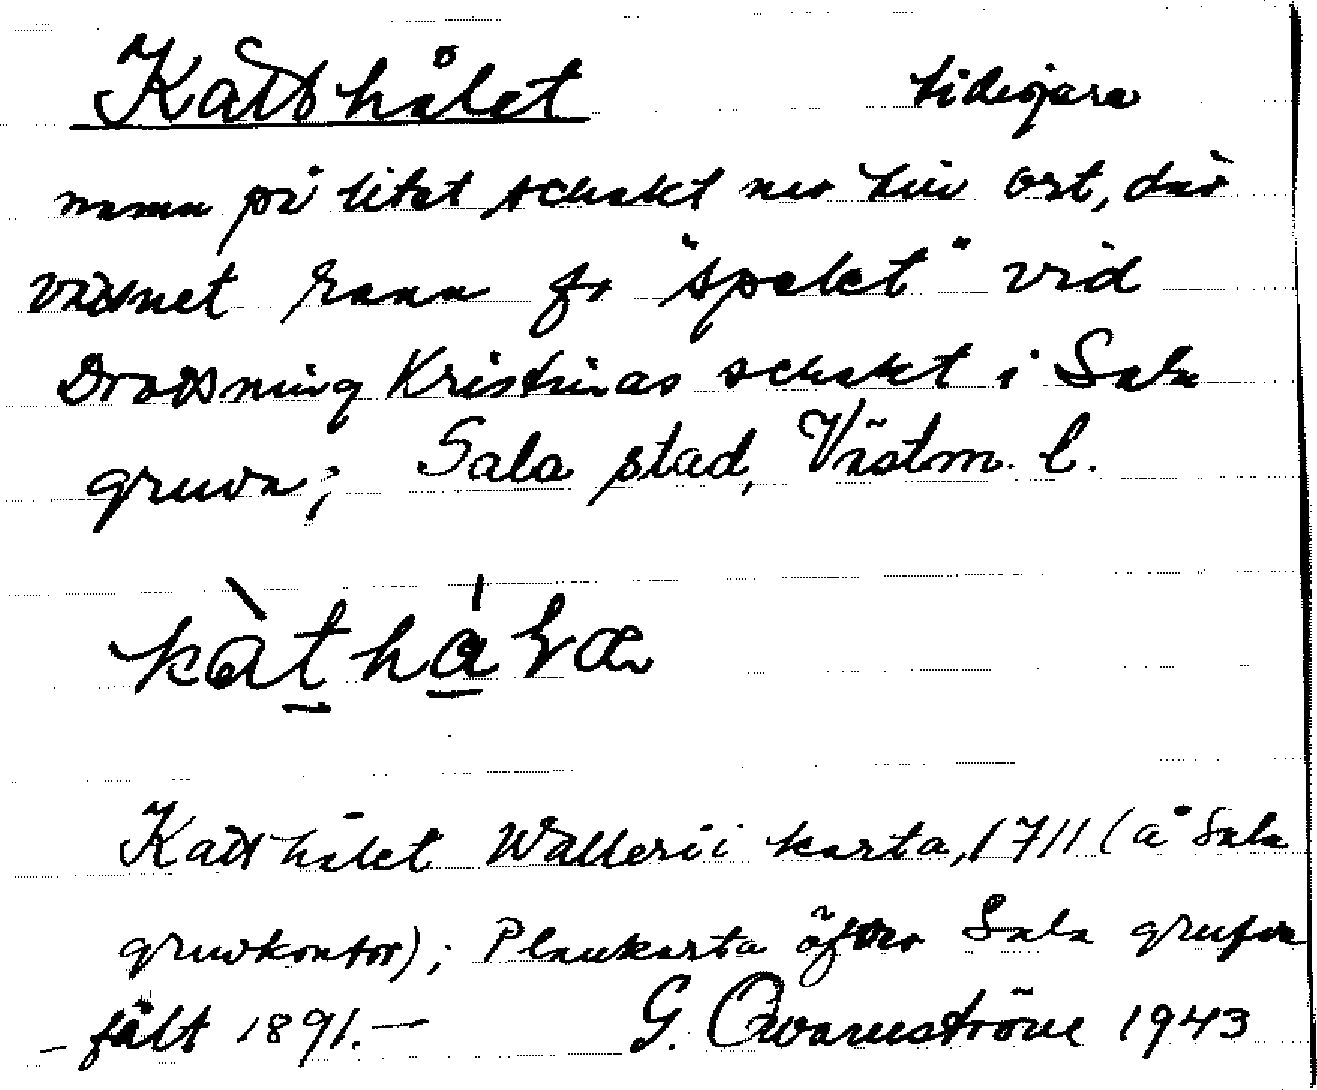 Katthålet tidigare
namn på litet schakt ner till ort, där
vattnet rann fr "spelet" vid
Drottning Kristinas schakt i Sala
gruva; Sala stad, Västm. l.
Katthålet Wallerii karta, 1711 (å Sala
gruvkontor); Plankarta öfver Sala grufve
- fält 1891. — G. Qvarnström 1943